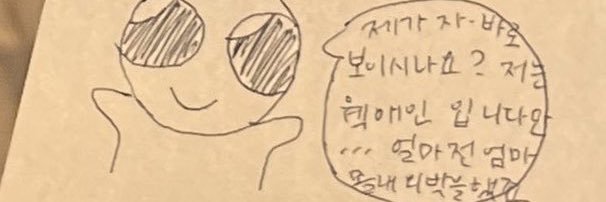 제가 자-바로
보이시나요? 저는
웩애인 입니다만
... 얼마전 엄마
몰내